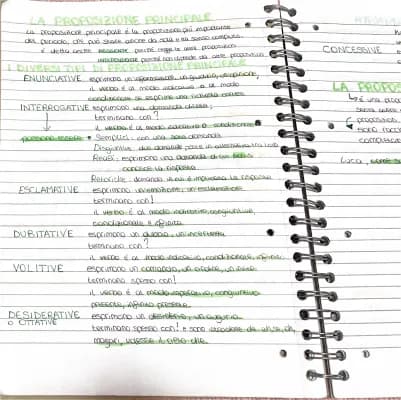 LA PROPOSIZIONE PRINCIPALE
La proposizione principale è la proposizione più importante
del periodo, che può stare anche da sola e ha senso compiuto.
è detta anche perché regge le altre proposizioni
indipendente perché non dipende da altre proposizioni
I DIVERSI TIPI DI PROPOSIZIONE PRINCIPALE
ENUNCIATIVE esprimono un'affermazione, un giudizio,
il verbo è al modo indicativo o al modo
condizionale se esprime una richiesta cortese
INTERROGATIVE esprimono una domanda diretta;
terminano con ?
il verbo è al modo indicativo o condizionale
possono essere • Semplici: con una sola domanda
Disgiuntive: due domande poste in alternativa tra loro
Reali: esprimono una domanda di cui non si
conosce la risposta
Retoriche: domanda in cui è implicita la risposta
ESCLAMATIVE esprimono un'emozione, un'esclamazione
terminano con !
il verbo è al modo indicativo, congiuntivo,
condizionale e infinito
DUBITATIVE esprimono un dubbio, un'incertezza
terminano con ?
il verbo è al modo indicativo, condizionale, infinito
VOLITIVE esprimono un comando, un ordine, un
terminano spesso con !
il verbo è al modo imperativo, congiuntivo
presente, infinito presente
DESIDERATIVE esprimono un desiderio, un augurio
o OTTATIVE terminano spesso con ! e sono da oh se, oh,
magari, volesse il cielo che.
CONCESSIVE
LA PROPOS
è una propo
proposizion
sono
Luca,